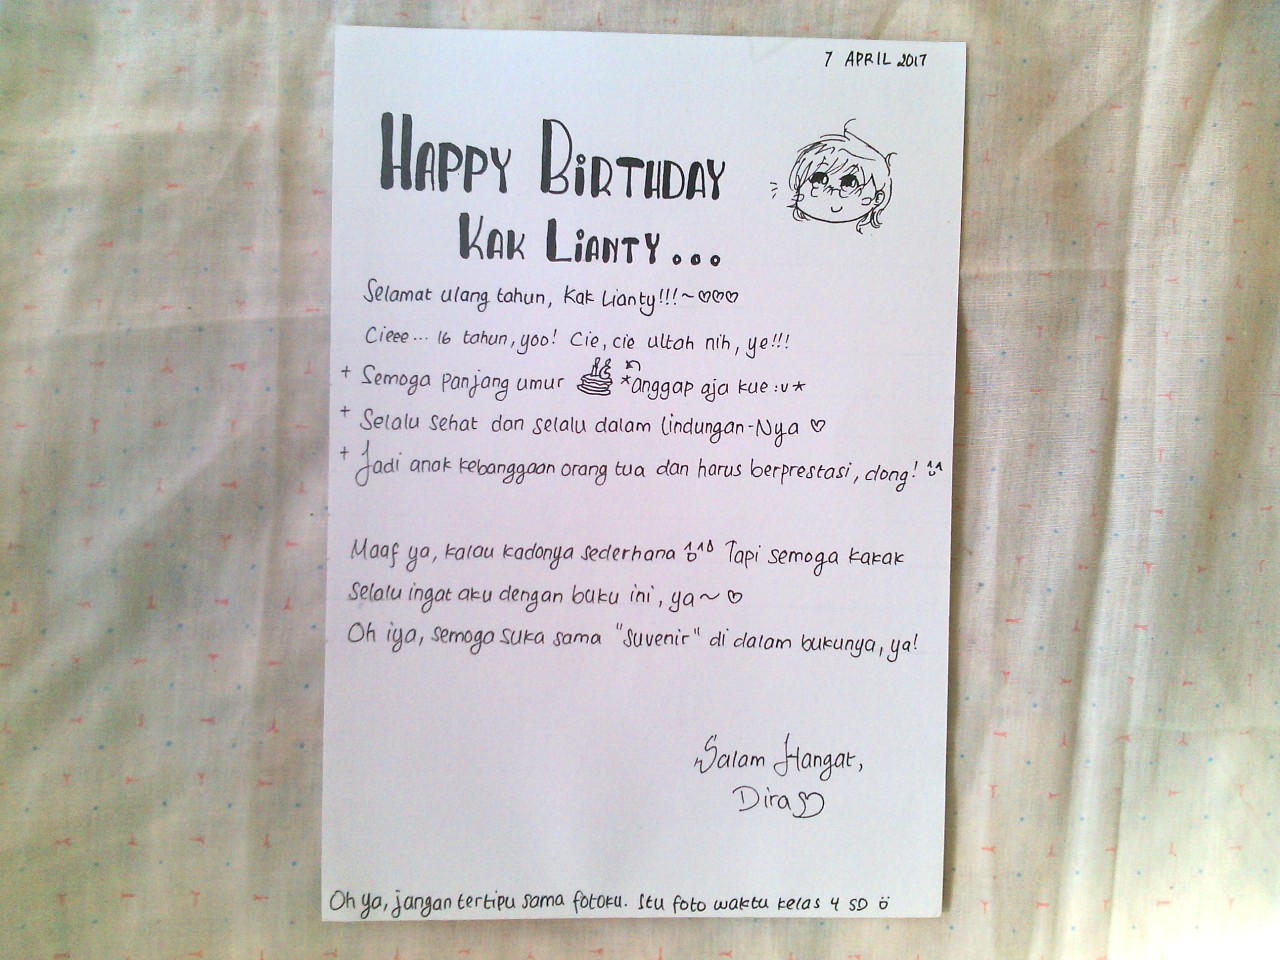 7 APRIL 2017
HAPPY BIRTHDAY
KAK LIANTY...
Selamat ulang tahun, Kak Lianty!!!~♡♡♡
Cieee... 16 tahun, yoo! Cie, cie ultah nih, ye!!!
+ Semoga panjang umur *anggap aja kue :v*
+ Selalu sehat dan selalu dalam lindungan-Nya ♡
+ Jadi anak kebanggaan orang tua dan harus berprestasi, dong! ^^
Maaf ya, kalau kadonya sederhana ^^ Tapi semoga kakak
selalu ingat aku dengan buku ini, ya~ ♡
Oh iya, semoga suka sama "suvenir" di dalam bukunya, ya!
Salam Hangat,
Dira♡
Oh ya, jangan tertipu sama fotoku. Itu foto waktu kelas 4 SD ö